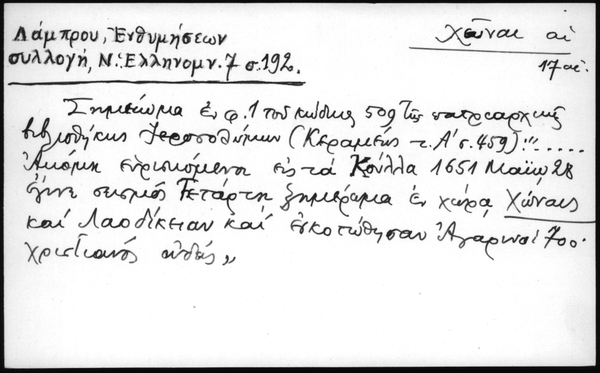 Λάμπρου, Ἐνθυμήσεων
συλλογή, Ν. Ἑλληνομν. 7 σ. 192.
Χῶναι αἱ
17 αἰ.
Σημείωμα ἐν φ. 1 τοῦ κώδικος 509 τῆς πατριαρχικῆς
βιβλιοθήκης Ἱεροσολύμων (Κεραμεύς τ. Α' σ. 459) "......
Ἀκόμη εὑρισκόμενοι εἰς τά Κούλλα 1651 Μαΐῳ 28
ἔγινε σεισμός Τετάρτη ξημέρωμα ἐν χώρᾳ Χώναις
καί Λαοδίκειαν καί ἐσκοτώθησαν Ἀγαρηνοί 700.
χριστιανός οὐδείς,,